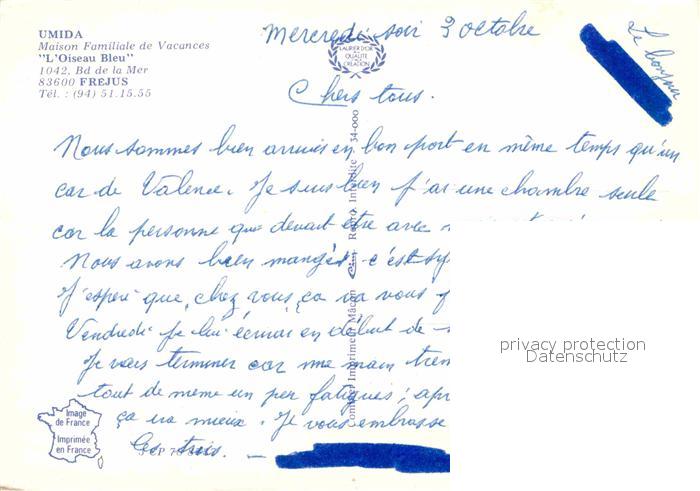 UMIDA
Maison Familiale de Vacances
"L'Oiseau Bleu"
1042, Bd de la Mer
83600 FREJUS
Tél. : (94) 51.15.55
Mercredi soir 3 octobre
LAURIER D'OR
DE LA
QUALITÉ
CRÉATION
Le bonjour
Chers tous.
Nous sommes bien arrivés en bon port en même temps qu'un
car de Valence. Je suis bien j'ai une chambre seule
car la personne qui devait être avec
Nous avons bien mangés c'est
J'espère que chez vous ça va vous
Vendredi je lui écrirai en début de
Je vais terminer car ma main
tout de même un peu fatiguée ;
ça va mieux. Je vous embrasse
les trois.
Combier Imprimeur Mâcon
Repro. Interdite
34-000
Image
de France
Imprimée
en France
privacy protection
Datenschutz